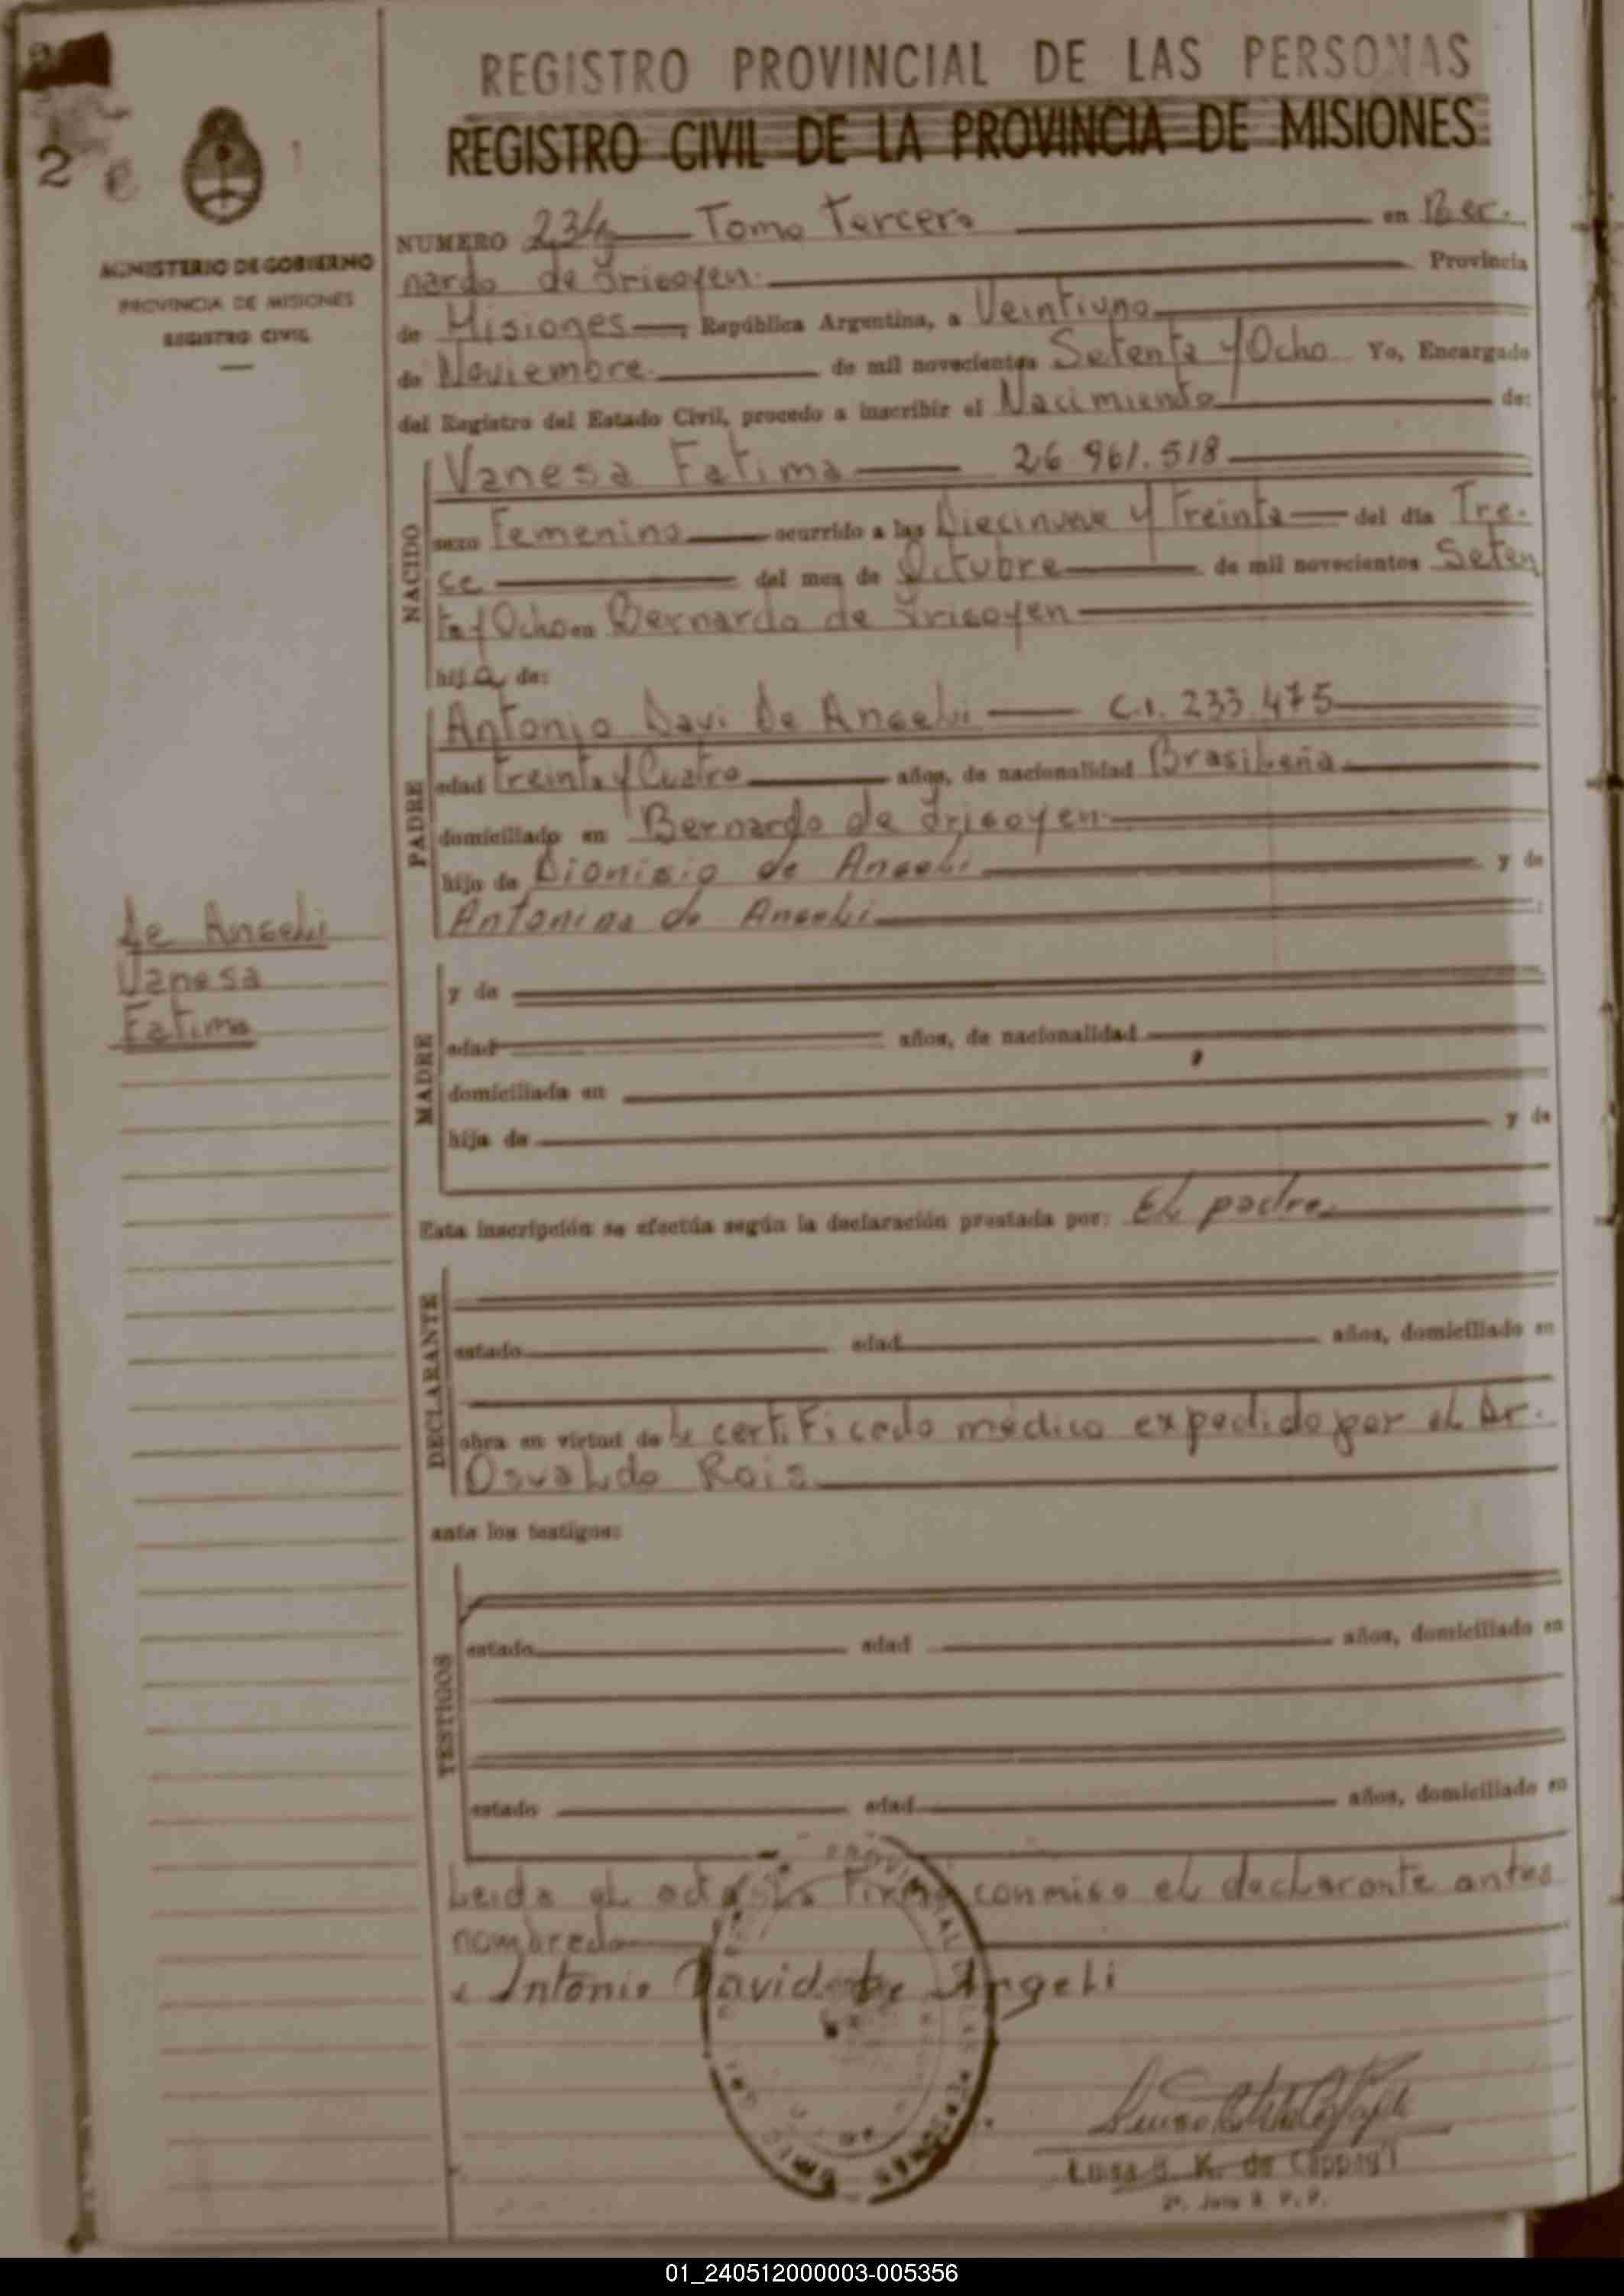 2
MINISTERIO DE GOBIERNO
PROVINCIA DE MISIONES
REGISTRO CIVIL
de Angeli
Vanesa
Fatima
REGISTRO PROVINCIAL DE LAS PERSONAS
REGISTRO CIVIL DE LA PROVINCIA DE MISIONES
NUMERO 234 Tomo Tercero en Ber.
nardo de Irigoyen. Provincia
de Misiones, República Argentina, a Veintiuno
de Noviembre. de mil novecientos Setenta y Ocho Yo, Encargado
del Registro del Estado Civil, procedo a inscribir el Nacimiento de:
NACIDO
Vanesa Fatima 26 961.518
sexo Femenino ocurrido a las Diecinueve y Treinta del día Tre.
ce del mes de Octubre de mil novecientos Seten
ta y Ocho en Bernardo de Irigoyen
hija de:
PADRE
Antonio Davi De Angeli C.I. 233.475
edad Treinta y Cuatro años, de nacionalidad Brasileña
domiciliado en Bernardo de Irigoyen
hijo de Dionisio de Angeli y de
Antonina de Angeli
MADRE
y de
edad años, de nacionalidad
domiciliada en
hija de y de
Esta inscripción se efectúa según la declaración prestada por: El padre
DECLARANTE
estado edad años, domiciliado en
obra en virtud de le certificado médico expedido por el Dr.
Osvaldo Rois
ante los testigos:
TESTIGOS
estado edad años, domiciliado en
estado edad años, domiciliado en
Leida el acta la firma conmigo el declarante antes
nombrado
Antonio David De Angeli
Luisa B. K. de
01_240512000003-005356